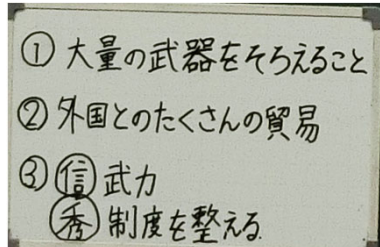 ① 大量の武器をそろえること
② 外国とのたくさんの貿易
③ 信 武力
秀 制度を整える